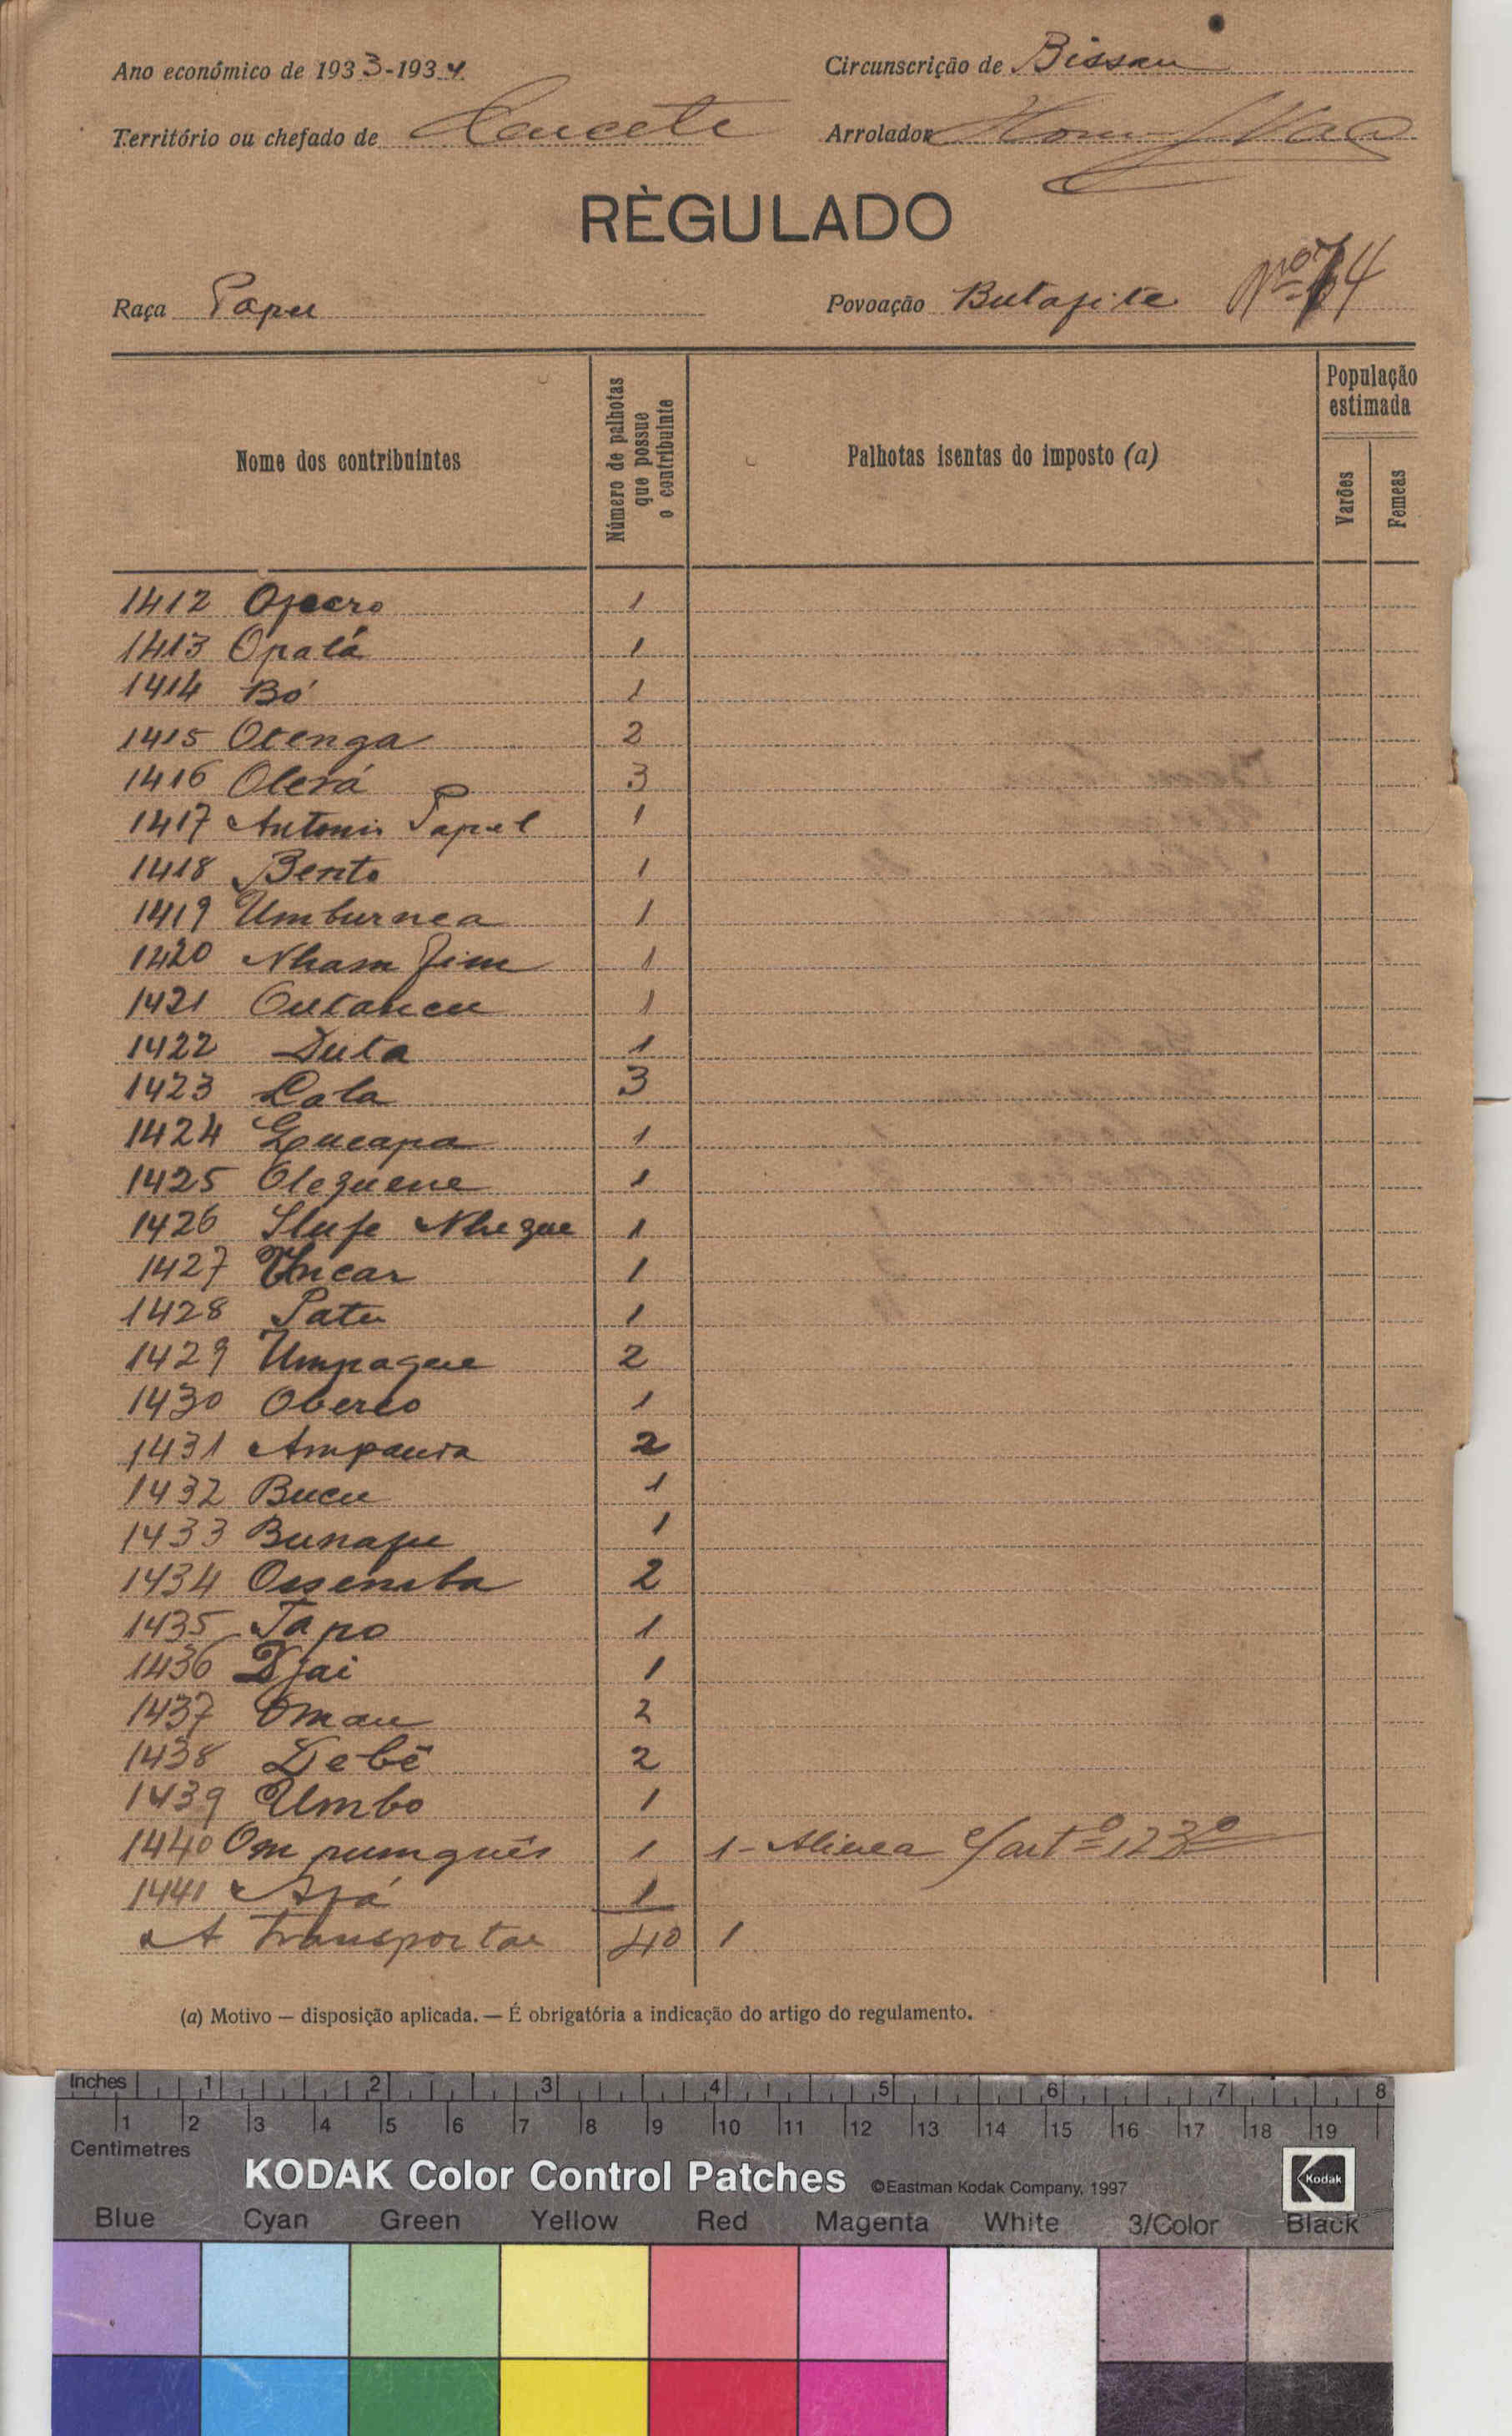 Ano económico de 1933-1934 Circunscrição de Bissau
Território ou chefado de Arrolador
RÈGULADO
Raça Papel Povoação Nº 74
Nome dos contribuintes
Número de palhotas que possue o contribuinte
Palhotas isentas do imposto (a)
População estimada
Varões
Femeas
1412 1
1413 Opalá 1
1414 Bó 1
1415 Otenga 2
1416 Olerá 3
1417 Antonio Papel 1
1418 Bento 1
1419 Umburnea 1
1420 Nham 1
1421 1
1422 Duta 1
1423 Lala 3
1424 1
1425 Oleguene 1
1426 1
1427 1
1428 Patu 1
1429 Umpaque 2
1430 1
1431 2
1432 Bucu 1
1433 1
1434 Ossemba 2
1435 Tapo 1
1436 Djai 1
1437 Omau 2
1438 Debê 2
1439 Umbo 1
1440 Om 1 1 - Alinea artº 123º
1441 1
A transportar 40 1
(a) Motivo — disposição aplicada. — É obrigatória a indicação do artigo do regulamento.
Inches 1 2 3 4 5 6 7 8
1 2 3 4 5 6 7 8 9 10 11 12 13 14 15 16 17 18 19
Centimetres
KODAK Color Control Patches ©Eastman Kodak Company, 1997 Kodak
Blue Cyan Green Yellow Red Magenta White 3/Color Black